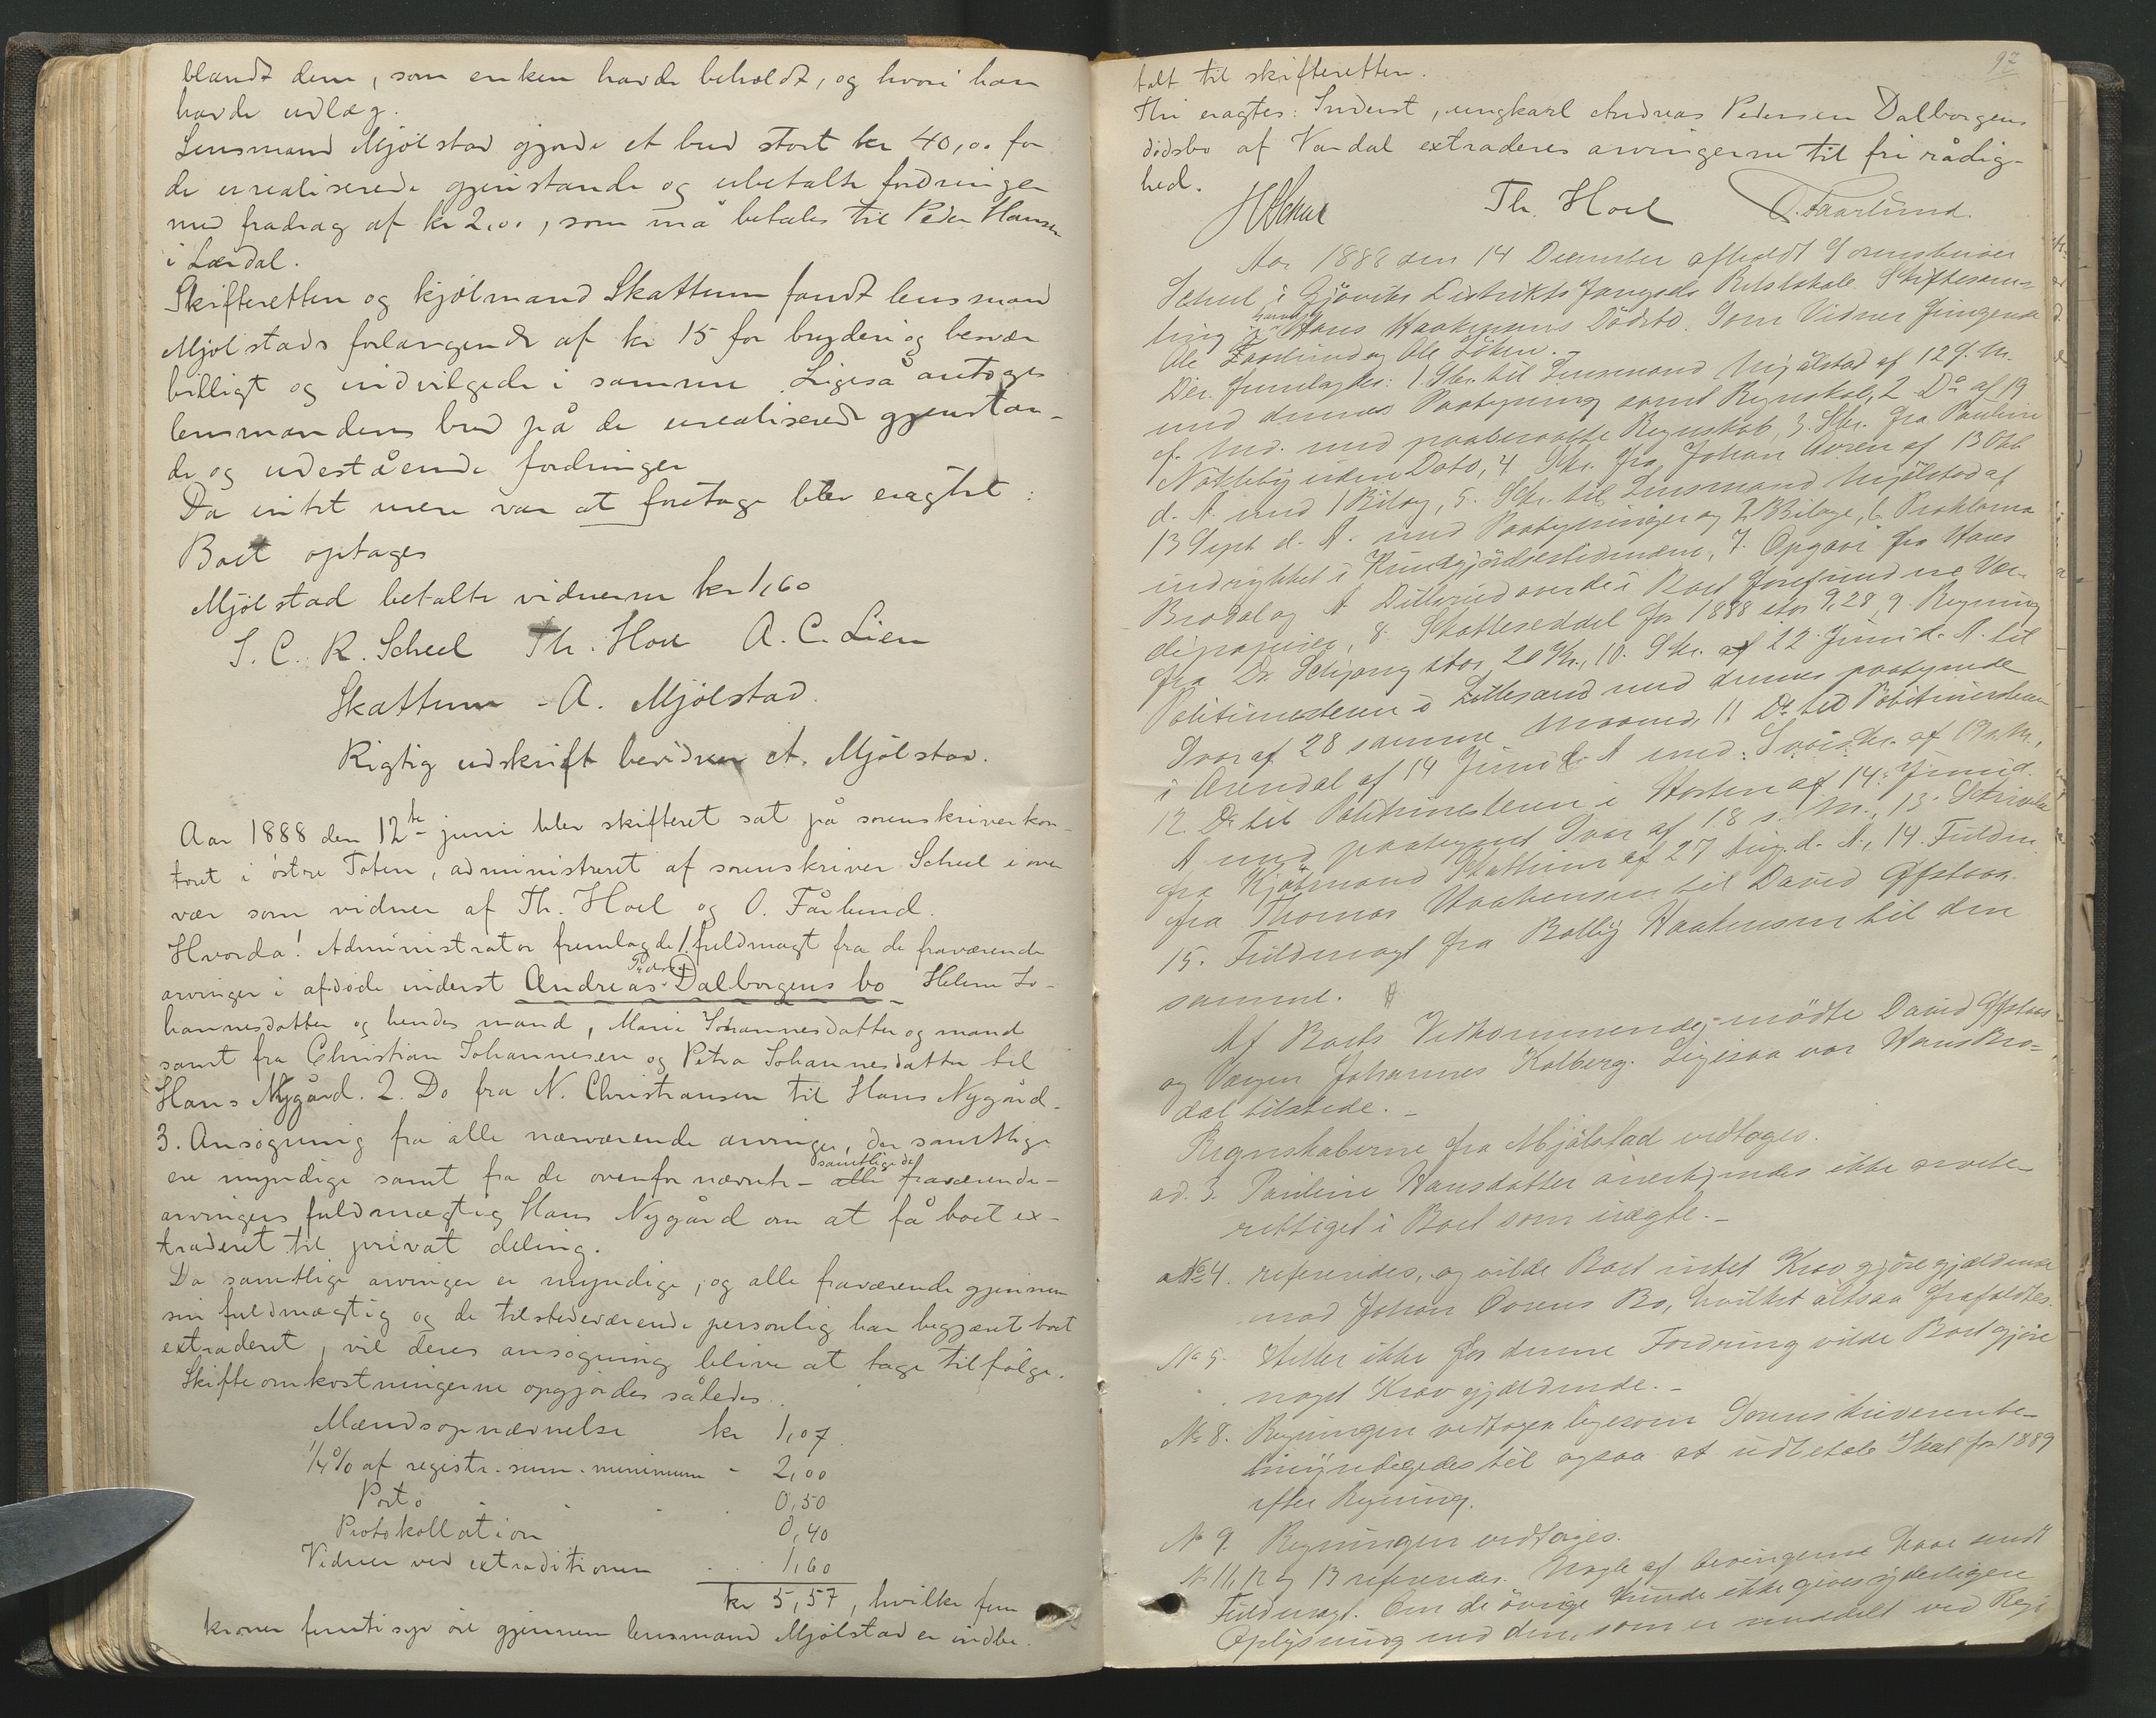 blandt dem, som enken havde beholdt, og hvori han
havde udlæg.
Lensmand Mjølstad gjorde et bud stort kr 40,00 for
de urealiserede gjenstande og ubetalte fordringer
med fradrag af kr 2,00, som må betales til Peder Hansen
i Lærdal.
Skifteretten og kjølmand Skattum fandt lensmand
Mjølstads forlangende af kr 15 for bryderi og besvær
billigt og indvilgede i samme. Ligeså antoges
lensmandens bud på de urealiserede gjenstan-
de og udestående fordringer
Da intet mere var at foretage blev eragtet:
Boet optages
Mjølstad betalte vidnerne kr 1,60
S. C. R. Scheel Th. Hoel A. C. Lien
Skattum - A. Mjølstad.
Rigtig udskrift bevidner A. Mjølstad.
Aar 1888 den 12te juni blev skifteret sat på sorenskriverkon-
toret i østre Toten, administreret af sorenskriver Scheel i over
vær som vidner af Th. Hoel og O. Fårlund.
Hvorda! Administrator fremlagde 1. fuldmagt fra de fraværende
arvinger i afdøde inderst Andreas Pedersen Dalborgens bo Helene Jo-
hannesdatter og hendes mand, Marie Johannesdatter og mand
samt fra Christian Johannesen og Petra Johannesdatter til
Hans Nygård. 2. Do fra N. Christiansen til Hans Nygård.
3. Ansøgning fra alle nærværende arvinger, der samtlige
ere myndige samt fra de ovenfor nævnte - alle samtlige de fraværende -
arvingers fuldmægtig Hans Nygård om at få boet ex-
traderet til privat deling.
Da samtlige arvinger er myndige, og alle fraværende gjennem
sin fuldmægtig og de tilstedeværende personlig har begjæret boet
extraderet, vil deres ansøgning blive at tage tilfølge.
Skifteomkostningerne opgjordes således:
Mændsopnævnelse kr 1,07
1/4% af registr. sum. minimum - 2,00
Porto 0,50
Protokollation 0,40
Vidner ved extraditionen 1,60
kr 5,57, hvilke fem
kroner femti syv øre gjennem lensmand Mjølstad er indbe-
92
talt til skifteretten.
Thi eragtes: Inderst, ungkarl Andreas Pedersen Dalborgens
dødsbo af Vardal extraderes arvingerne til fri rådig-
hed.
Scheel Th. Hoel O. Faarlund.
Aar 1888 den 14 December afholdt Sorenskriver
Scheel i Gjøviks Distrikts Fængsels Retslokale Skiftesam-
ling i Hans Haakensens Dødsbo. Som Vidner fungerede
Ole Faarlund og Ole Løken.
Der fremlagdes: 1. Skr. til Lensmand Mjølstad af 12 f. M.
med dennes Paategning samt Regnskab, 2. Do af 19
f. Md. med paaberaabte Regnskab, 3. Skr. fra Pauline
Nøkleby uden Dato, 4 Skr. fra Johan Aoren af 13 Okt
d. A. med 1 Bilag, 5. Skr. til Lensmand Mjølstad af
13 Sept d. A. med Paategninger og 2 Bilage, 6. Proklama
indrykket i Kundgjørelsestidende, 7. Opgave fra Hans
Brodal og A over de i Boet forefundne Vær-
dipapirer, 8. Skatteseddel for 1888 stor 9,28, 9. Regning
fra Dr. stor 20 Kr., 10. Skr. af 22 Juni d. A. til
Politimesteren i Lillesand med dennes paategnede
Svar af 28 samme Maaned, 11 Do til Politimesteren
i Arendal af 14 Juni d. A med Svarskr. af 19 s. M.,
12. Do til Politimesteren i Horten af 14. Juni d.
A med paategnet Svar af 18 s. M., 13. Skrivelse
fra Kjølmand Skattum af 27 Aug. d. A., 14. Fuldm.
fra Thomas Haakensen til David Gfstaas.
15. Fuldmagt fra Bollig Haakensen til den
samme.
Af Boets Vedkommende mødte David Gfstaas
og Værgen Johannes Kolberg. Ligesaa var Hans Bro-
dal tilstede. -
Regnskaberne fra Mjølstad vedtoges.
ad. 3. Pauline Hansdatter anerkjendes ikke arvebe-
rettiget i Boet som uægte. -
No 4. refereredes, og vilde Boet intet Krav gjøre gjældende
mod Johan Aorens Bo, hvilket altsaa frafaldtes.
No 5. Heller ikke for denne Fordring vilde Boet gjøre
noget Krav gjældende. -
No 8. Regningen vedtoges ligesom Sorenskriveren be-
myndigedes til ogsaa at udbetale Skat for 1889
efter Regning.
No 9. Regningen vedtoges.
No 11, 12 og 13 refereredes. Nogle af Arvingerne have sendt
Fuldmagt. Om de øvrige kunde ikke gives yderligere
Oplysning end den, som er meddelt ved Regi